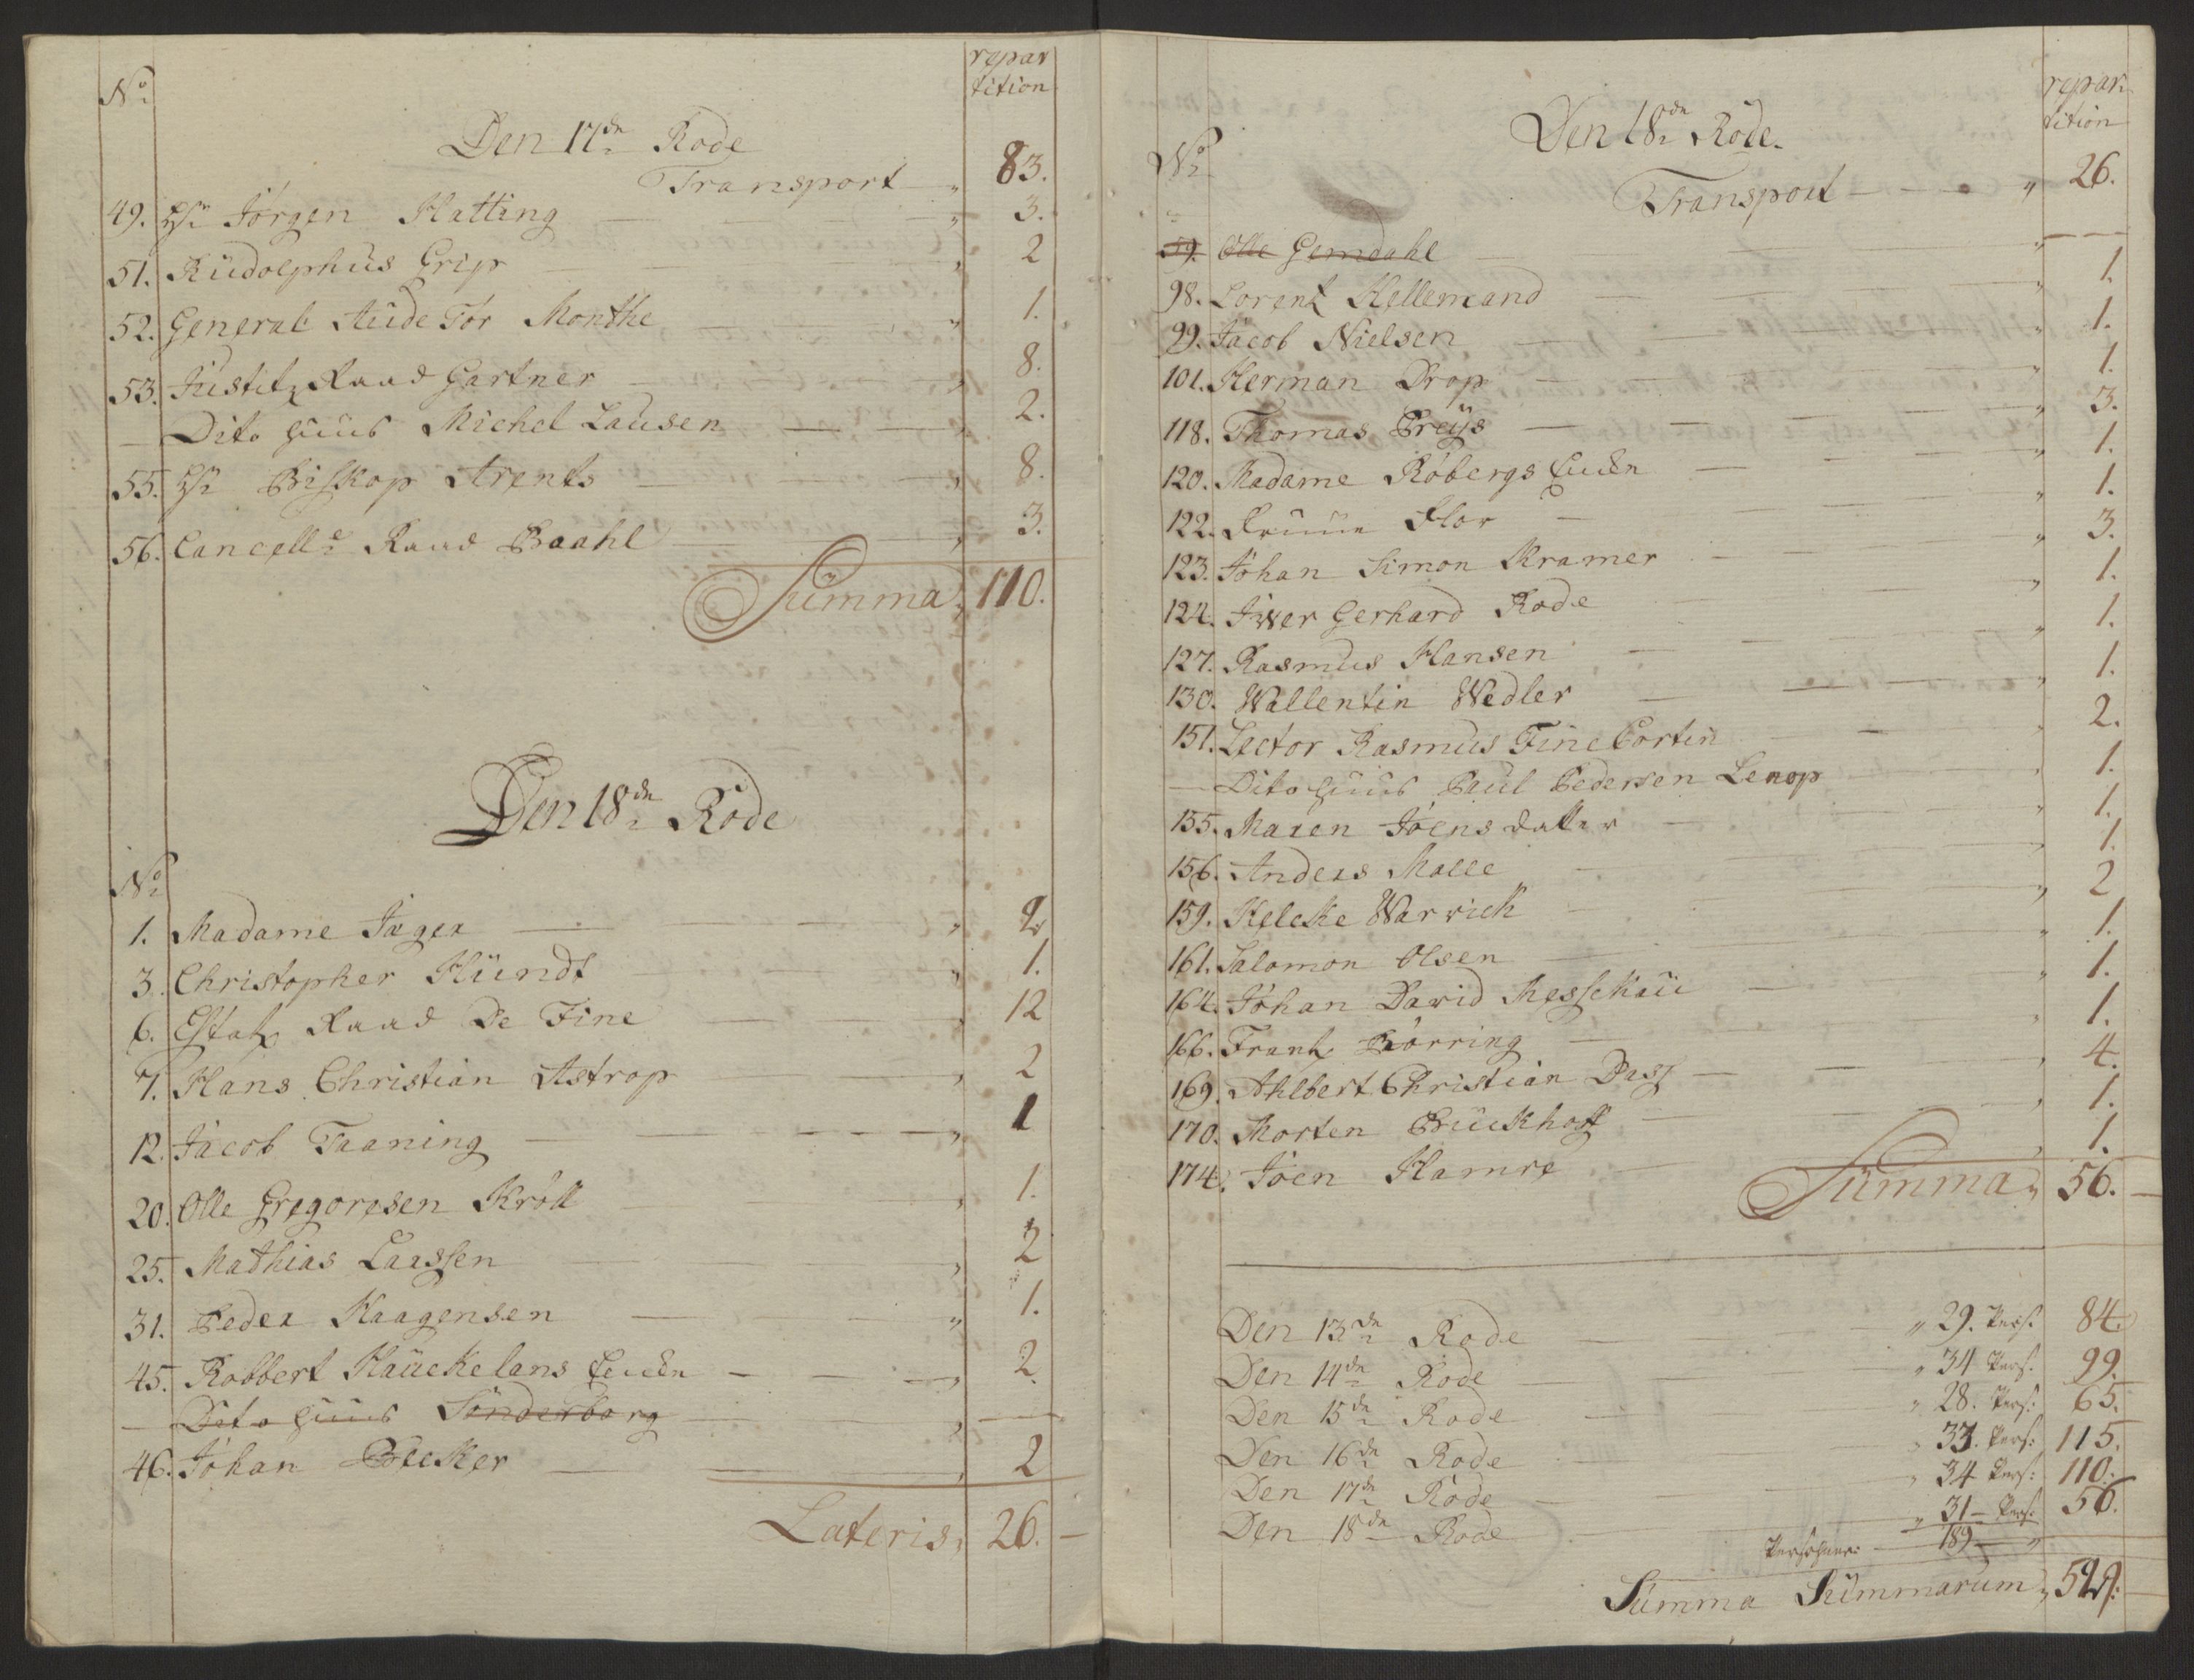 No
repar
tition
Den 17de Rode
Transport " 83.
49. Hr Jörgen Hatting " 3.
51. Rudolphus Grip " 2
52. General Aude Tör Monthe " 1.
53. Justitz Raad Gartner " 8.
— Dito Huus Michel Lausen " 2.
55. Hr Biskop Arents " 8.
56. Cancelle Raad Baahl " 3.
Summa " 110.
Den 18de Rode
No
1. Madame Jæger " 2
3. Christopher Hundt " 1.
6. Etatz Raad De Fine " 12
7. Hans Christian Astrop " 2
12. Jacob Taaning " 1
20. Olle Gregoresen Kröll " 1.
25. Mathias Larssen " 2
31. Peder Haagensen " 1.
45. Robbert Hauckelans Encke " 2.
— Dito Huus Sönderborg " —
46. Johan Becker " 2
Lateris, 26. —
repar
tition
Den 18de Rode.
No
Transport " 26.
59. Olle Gemdahl " —
98. Lorentz Hellemand " 1.
99. Jacob Nielsen " 1.
101. Herman Drop " 1.
118. Thomas Greys " 3.
120. Madame Röbergs Encke " 1.
122. Fruue Flor " 1.
123. Johan Simon Kramer " 3.
124. Iwer Gerhard Rode " 1.
127. Rasmus Hansen " 1.
130. Wallentin Wedler " 1.
151. Lector Rasmus Fine Cortin " 2.
— Dito Huus Paul Pedersen Lenop " 1.
155. Maren Joensdatter " 1.
156. Anders Malle " 1.
159. Keleke Warwich " 2
161. Salomon Olsen " 1.
164. Johan David Messchau " 1.
166. Frantz Börring " 1.
169. Ahlbert Christian Dass " 4.
170. Morten Brückhoff " 1.
174. Joen Hamre " 1.
Summa " 56. —
Den 13de Rode " 29. Pers: 84.
Den 14de Rode " 34 Pers: 99.
Den 15de Rode " 28. Pers: 65.
Den 16de Rode " 33. Pers: 115.
Den 17de Rode " 34 Pers: 110.
Den 18de Rode " 31 — Pers: 56.
Persohner: 189 — "
Summa Summarum " 529: